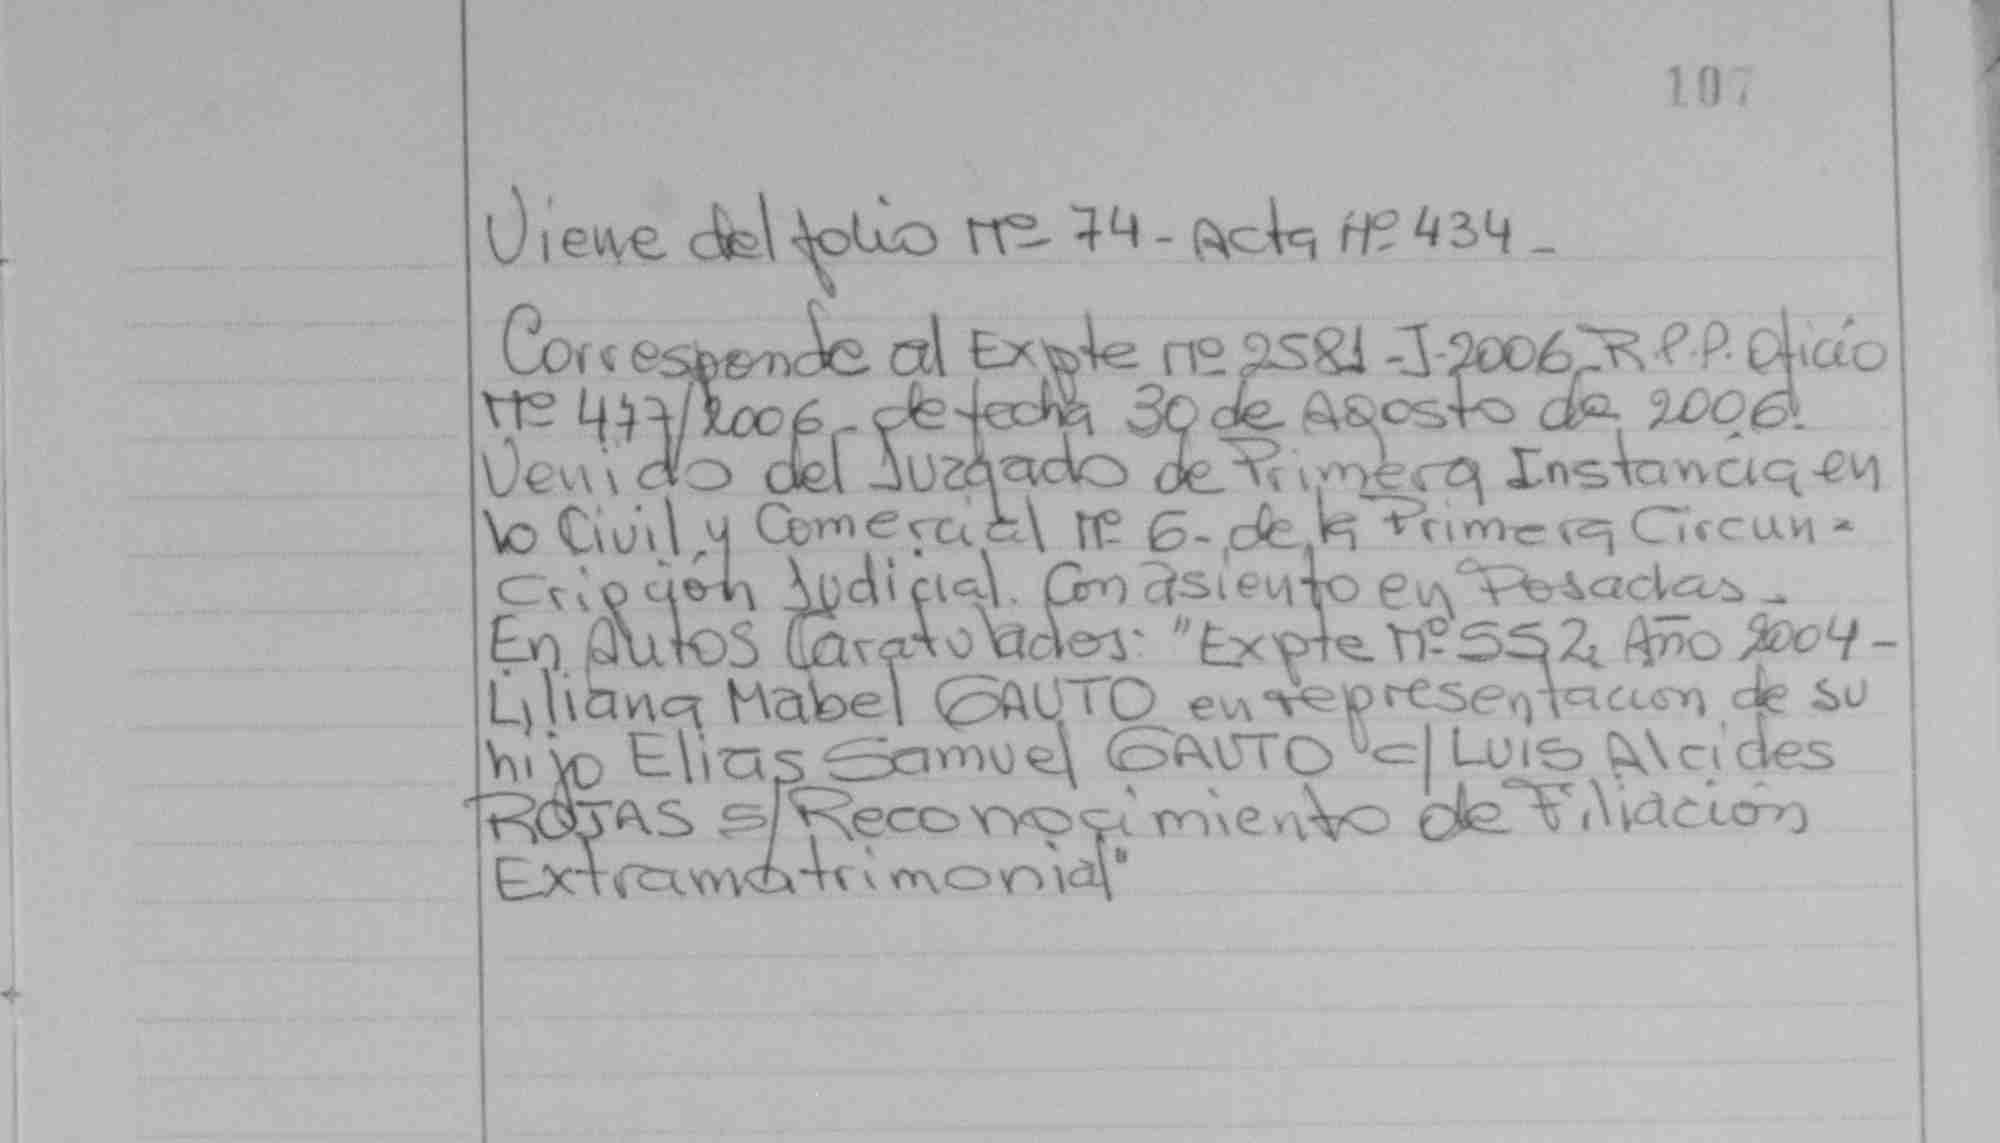 107
Viene del folio Nº 74 - Acta Nº 434 -
Corresponde al Expte nº 2581 - J - 2006 - R.P.P. Oficio
Nº 477/2006 - de fecha 30 de Agosto de 2006.
Venido del Juzgado de Primera Instancia en
lo Civil y Comercial Nº 6 - de la Primera Circun -
cripción Judicial. Con asiento en Posadas -
En Autos Caratulados: "Expte Nº 552, Año 2004 -
Liliana Mabel GAUTO en representacion de su
hijo Elias Samuel GAUTO c/ LUIS Alcides
ROJAS s/ Reconocimiento de Filiación
Extramatrimonial"